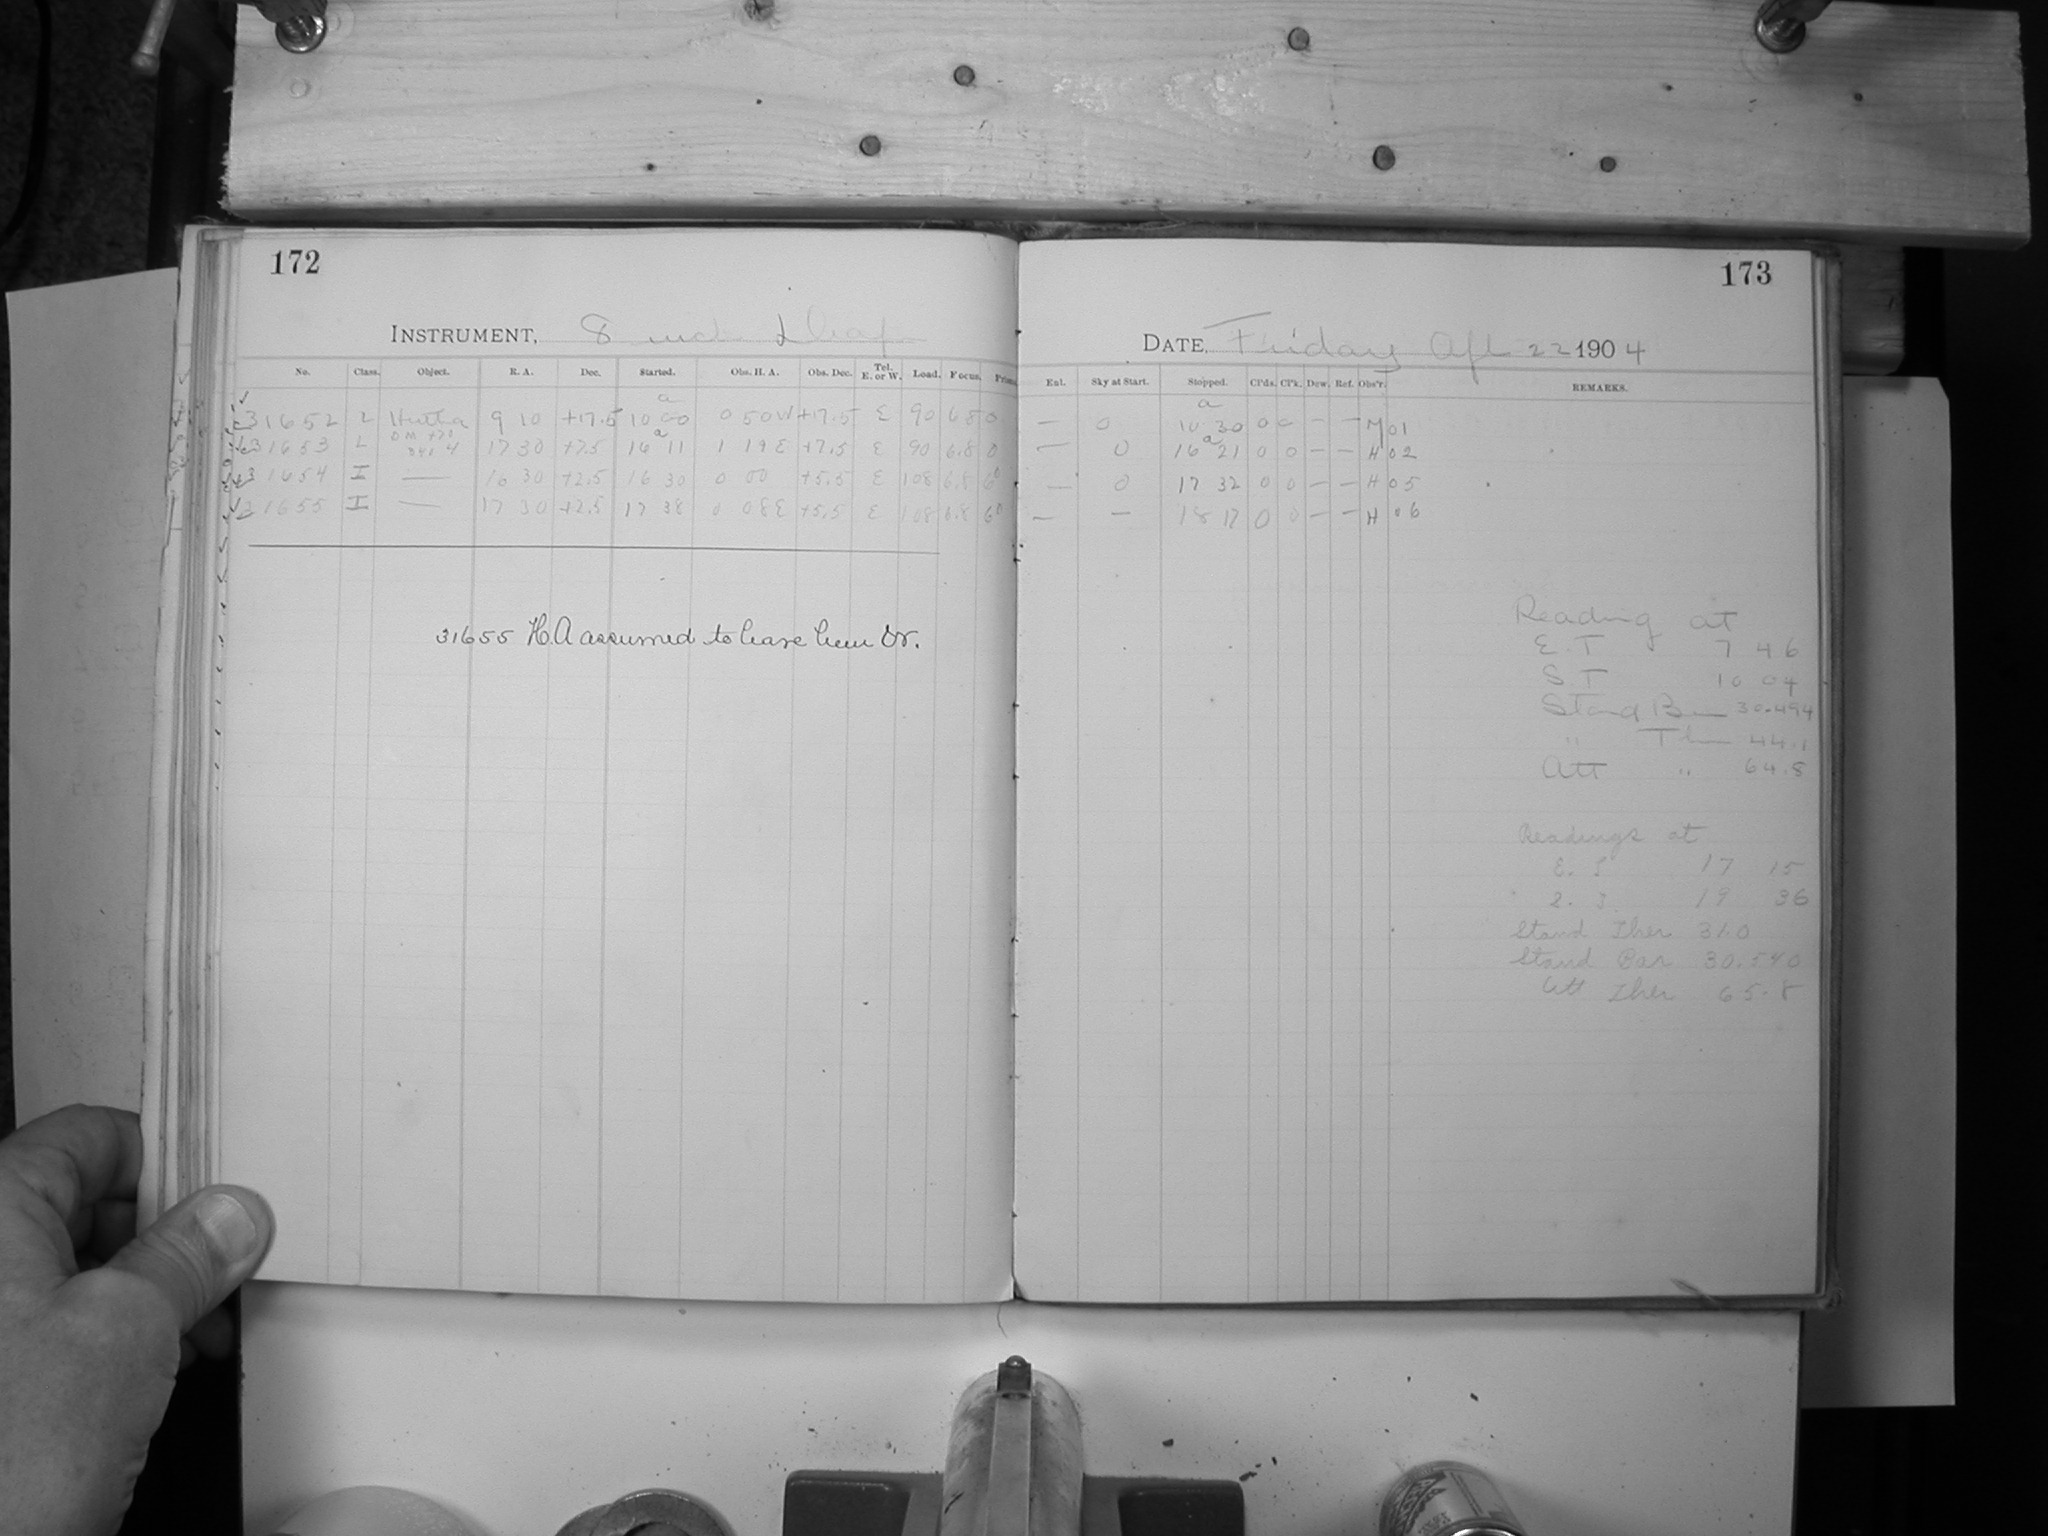 172
INSTRUMENT, 8 inch Draper
No. Class. Object. R. A. Dec. Started. Obs. H. A. Obs. Dec. Tel. E. or W. Load. Focus. Prism
31652 L 9 10 +17.5 10 00 0 50 W +17.5 E 90 6.8 0
31653 L DM +20 17 30 +7.5 16 11 1 19 E +7.5 E 90 6.8 0
31654 I — 16 30 +2.5 16 30 0 00 +5.5 E 108 6.8 6°
31655 I — 17 30 +2.5 17 38 0 08 E +5.5 E 108 6.8 6°
31655 H.A assumed to have been Or.
173
DATE, Friday Apl 22 1904
Ext. Sky at Start. Stopped. Cl'ds. Cl'k. Dew. Ref. Obs'r. REMARKS.
— 0 10 30 0 0 — — M 01
— 0 16 21 0 0 — — H 02
— 0 17 32 0 0 — — H 05
— — 18 17 0 0 — — H 06
Reading at
E. T 7 46
S. T 10 04
Stand Bar 30.494
" Ther 44.1
Att " 64.8
Readings at
E. T 17 15
S. T 19 36
Stand Ther 31.0
Stand Bar 30.540
Att Ther 65.8